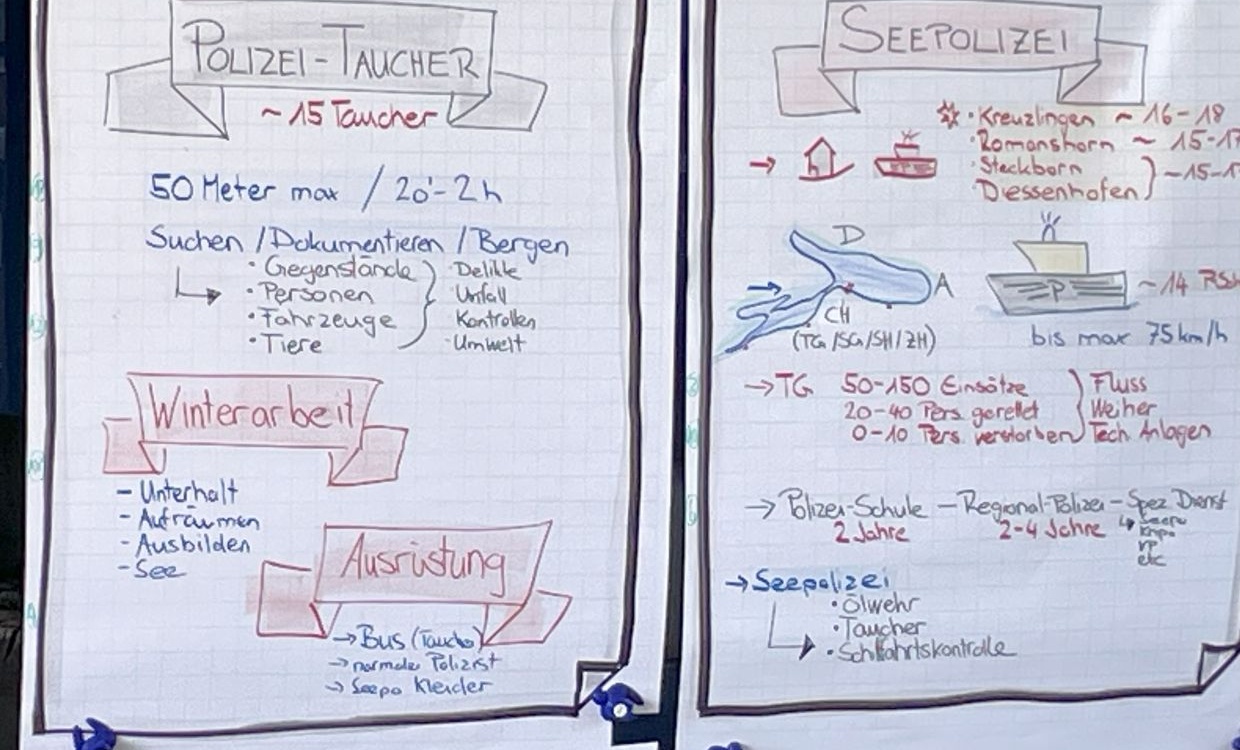 POLIZEI-TAUCHER
~15 Taucher
50 Meter max / 20'-2h
Suchen / Dokumentieren / Bergen
• Gegenstände } · Delikte
• Personen · Unfall
• Fahrzeuge · Kontrollen
• Tiere · Umwelt
Winterarbeit
- Unterhalt
- Aufräumen
- Ausbilden
- See
Ausrüstung
→ Bus (Taucher)
→ normaler Polizist
→ Seepo Kleider
SEEPOLIZEI
• Kreuzlingen ~ 16-18
• Romanshorn ~ 15-17
• Steckborn } ~15-1
Diessenhofen
D
A
CH
(TG/SG/SH/ZH)
P
~14
bis max 75km/h
→ TG 50-150 Einsätze } Fluss
20-40 Pers. gerettet Weiher
0-10 Pers. verstorben Tech. Anlagen
→ Polizei-Schule - Regional-Polizei - Spez Dienst
2 Jahre 2-4 Jahre ↳ Seepo
Kripo
VP
etc
→ Seepolizei
• Ölwehr
• Taucher
• Schifffahrtskontrolle